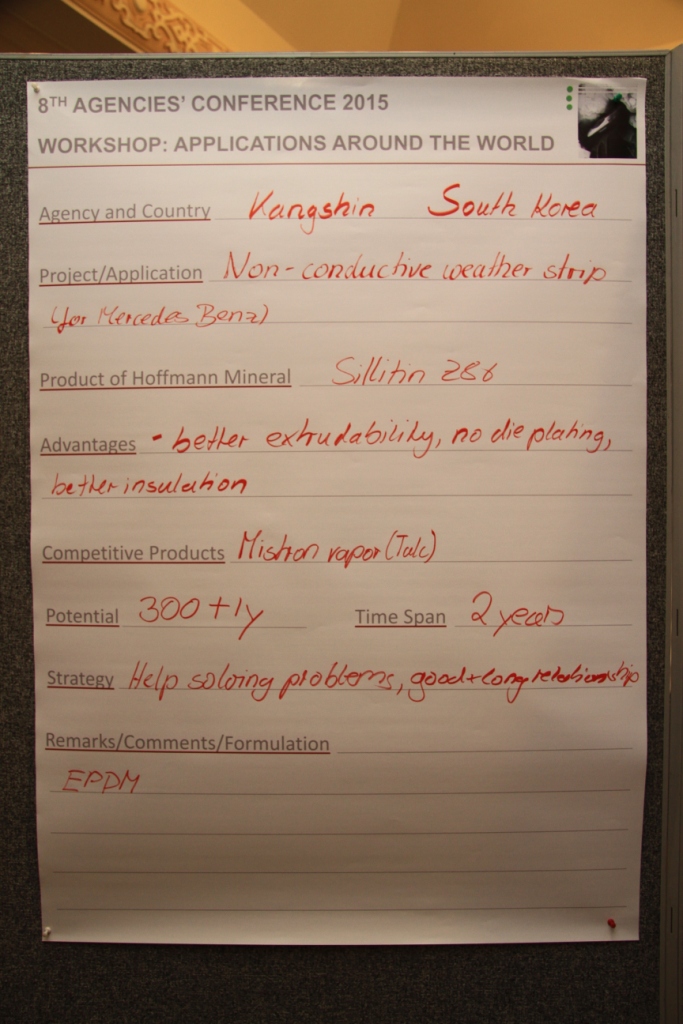 8TH AGENCIES' CONFERENCE 2015
WORKSHOP: APPLICATIONS AROUND THE WORLD
Agency and Country Kangshin South Korea
Project/Application Non-conductive weather strip
(for Mercedes Benz)
Product of Hoffmann Mineral Sillitin Z86
Advantages - better extrudability, no die plating,
better insulation
Competitive Products Mistron vapor (Talc)
Potential 300 t/y Time Span 2 years
Strategy Help solving problems, good+long relationship
Remarks/Comments/Formulation
EPDM